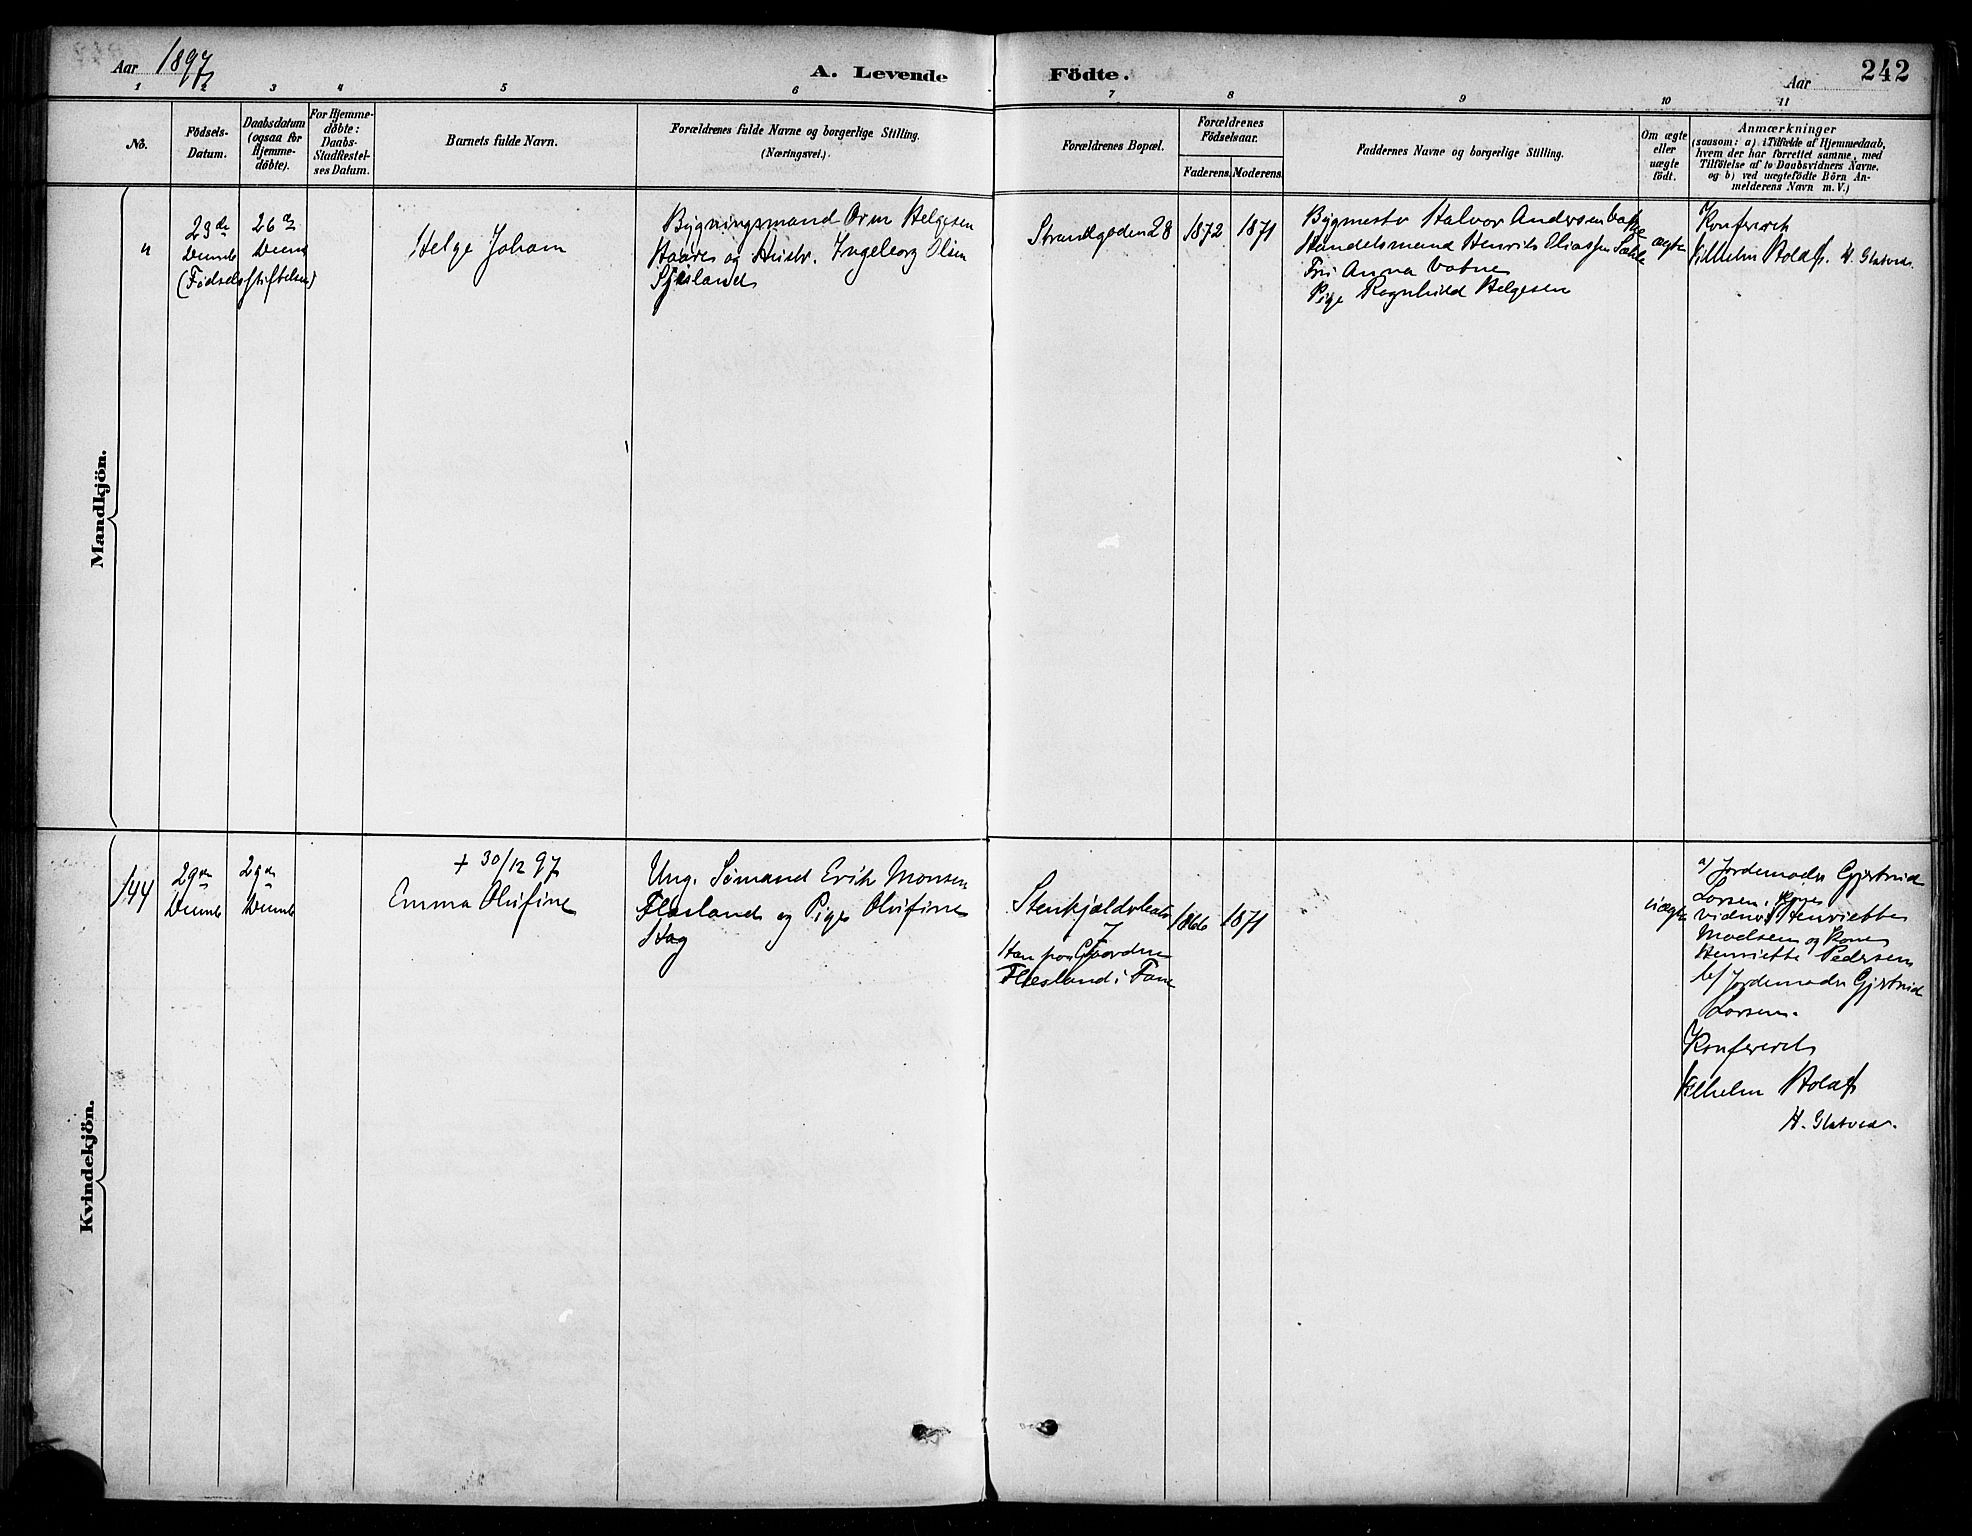 Aar 1897
A. Levende Födte.
Aar
242
1 2 3 4 5 6 7 8 9 10 11
No.
Födsels-
Datum.
Daabsdatum
(ogsaa for
Hjemme-
döbte).
For Hjemme-
döbte:
Daabs-
Stadfæstel-
ses Datum.
Barnets fulde Navn.
Forældrenes fulde Navne og borgerlige Stilling.
(Næringsvei.)
Forældrenes Bopæl.
Forældrenes
Födselsaar.
Faderens.
Moderens.
Faddernes Navne og borgerlige Stilling.
Om ægte
eller
uægte
født.
Anmærkninger
(saasom: a) i Tilfælde af Hjemmedaab,
hvem der har forrettet samme, med
Tilföielse af to Daabsvidners Navne.
og b) ved uægtefödte Börn An-
melderens Navn m. V.)
Mandkjön.
23de
Decemb
(Fødselsstiftelsen)
26de
Decemb
Helge Johan
Bygningsmand Orm Helgesen
Haare og Hustr. Ingeborg Olsen
Strandgaden 28
1872
1871
Bygmester Halvor Andersen
Handelsmand Henrik Eliassen
Fru Anna Vatne
Pige Ragnhild Helgesen
ægte
Konfereret
Vilhelm Hold
Kvindekjön.
144
29de
Decemb
29de
Decemb
+ 30/12 97
Emma Olufine
Ung. Sømand Erik Monsen
Flesland og Pige Olufine
7
Han paa Gaarden
Flesland i Fane
1866
1871
uægte
a/ Jordemoder Gjertrud
Larsen,
vidner Henriette
Madsen og Kone
Henriette Pedersen
b/ Jordemoder Gjertrud
Larsen.
Konfereret
Vilhelm Hold